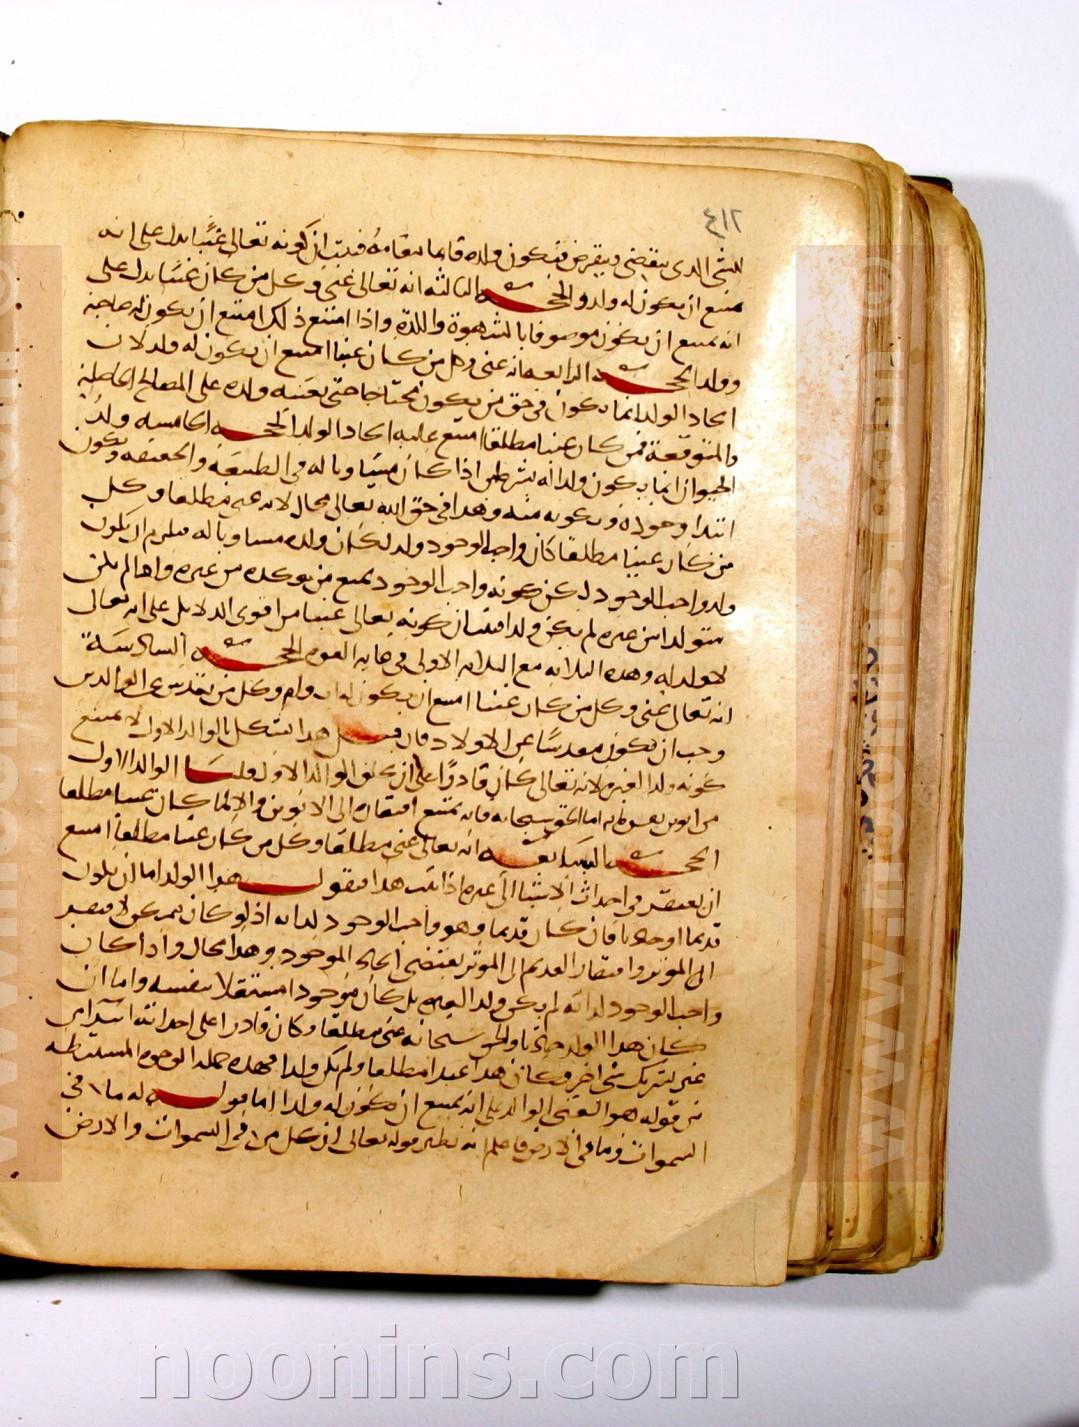 ٤١٢
للشي الذي ينقضي وينقرض فيكون ولده قايما مقامه فثبت ان كونه تعالى غنيا يدل على انه
يمتنع ان يكون له ولد والحجة الثالثة انه تعالى غني وكل من كان غنيا يدل على
انه يمتنع ان يكون موصوفا بالشهوة واللذة واذا امتنع ذلك امتنع ان يكون له صاحبة
وولد الحجة الرابعة انه غني وكل من كان غنيا امتنع ان يكون له ولد لان
اتحاد الولد انما يكون في حق من يكون محتاجا حتى يعينه ولده على المصالح الحاصلة
والمتوقعة فمن كان غنيا مطلقا امتنع عليه اتحاد الولد الحجة الخامسة ولد
الحيوان انما يكون ولدا له بشرطين اذا كان مساويا له في الطبيعة والحقيقة ويكون
ابتدا وجوده وتكونه منه وهذا في حق الله تعالى محال لانه غني مطلقا وكل
من كان غنيا مطلقا كان واجب الوجود ولد لكان ولده مساويا له فيلزم ان يكون
ولد واجب الوجود لكن كونه واجب الوجود يمنع من تولده من غيره واذا لم يكن
متولدا من غيره لم يكن ولدا فثبت ان كونه تعالى غنيا من اقوى الدلايل على انه تعالى
لا ولد له وهذه الثلاثة مع الثلاثة الاولى في غاية القوة الحجة السادسة
انه تعالى غني وكل من كان غنيا امتنع ان يكون له اب وام وكل من تقدس عن الوالدين
وجب ان يكون مقدسا عن الاولاد فان قيل هذا يشكل بالوالد الاول لا يمتنع
كونه ولدا لغيره لانه تعالى كان قادرا على ان يخلق الوالد الاول قلنا الوالد الاول
من ابوين اما الحق سبحانه فانه يمتنع افتقاره الى الابوين والا لما كان غنيا مطلقا
الحجة السابعة انه تعالى غني مطلقا وكل من كان غنيا مطلقا امتنع
ان يفتقر في احداث الاشياء الى غيره اذا ثبت هذا فنقول هذا الولد اما ان يكون
قديما او حادثا فان كان قديما وهو واجب الوجود لذاته اذ لو كان ممكن لافتقر
الى المؤثر وافتقار القديم الى المؤثر يقتضي ايجاد الموجود وهذا محال واذا كان
واجب الوجود لذاته لم يكن ولدا لغيره بل كان موجودا مستقلا بنفسه واما ان
كان هذا الولد حادثا والحق سبحانه غني مطلقا وكان قادرا على احداثه ابتدا من
غير تشريك شي اخر فكان هذا عبدا مطلقا ولم يكن ولدا فهذه جملة الوجوه المستنبطة
من قوله هو الغني الدالة على انه يمتنع ان يكون له ولدا اما قوله له ما في
السموات وما في الارض فاعلم انه نظير قوله تعالى ان كل من في السموات والارض